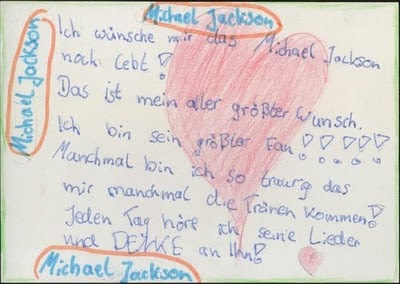 Michael Jackson
Michael Jackson
Ich wünsche mir das Michael Jackson
noch lebt!
Das ist mein aller größter Wunsch.
Ich bin sein größter Fan!!!!!
Manchmal bin ich so traurig das
mir manchmal die Tränen kommen!
Jeden Tag höre ich seine Lieder
und DENKE an Ihn!
Michael Jackson